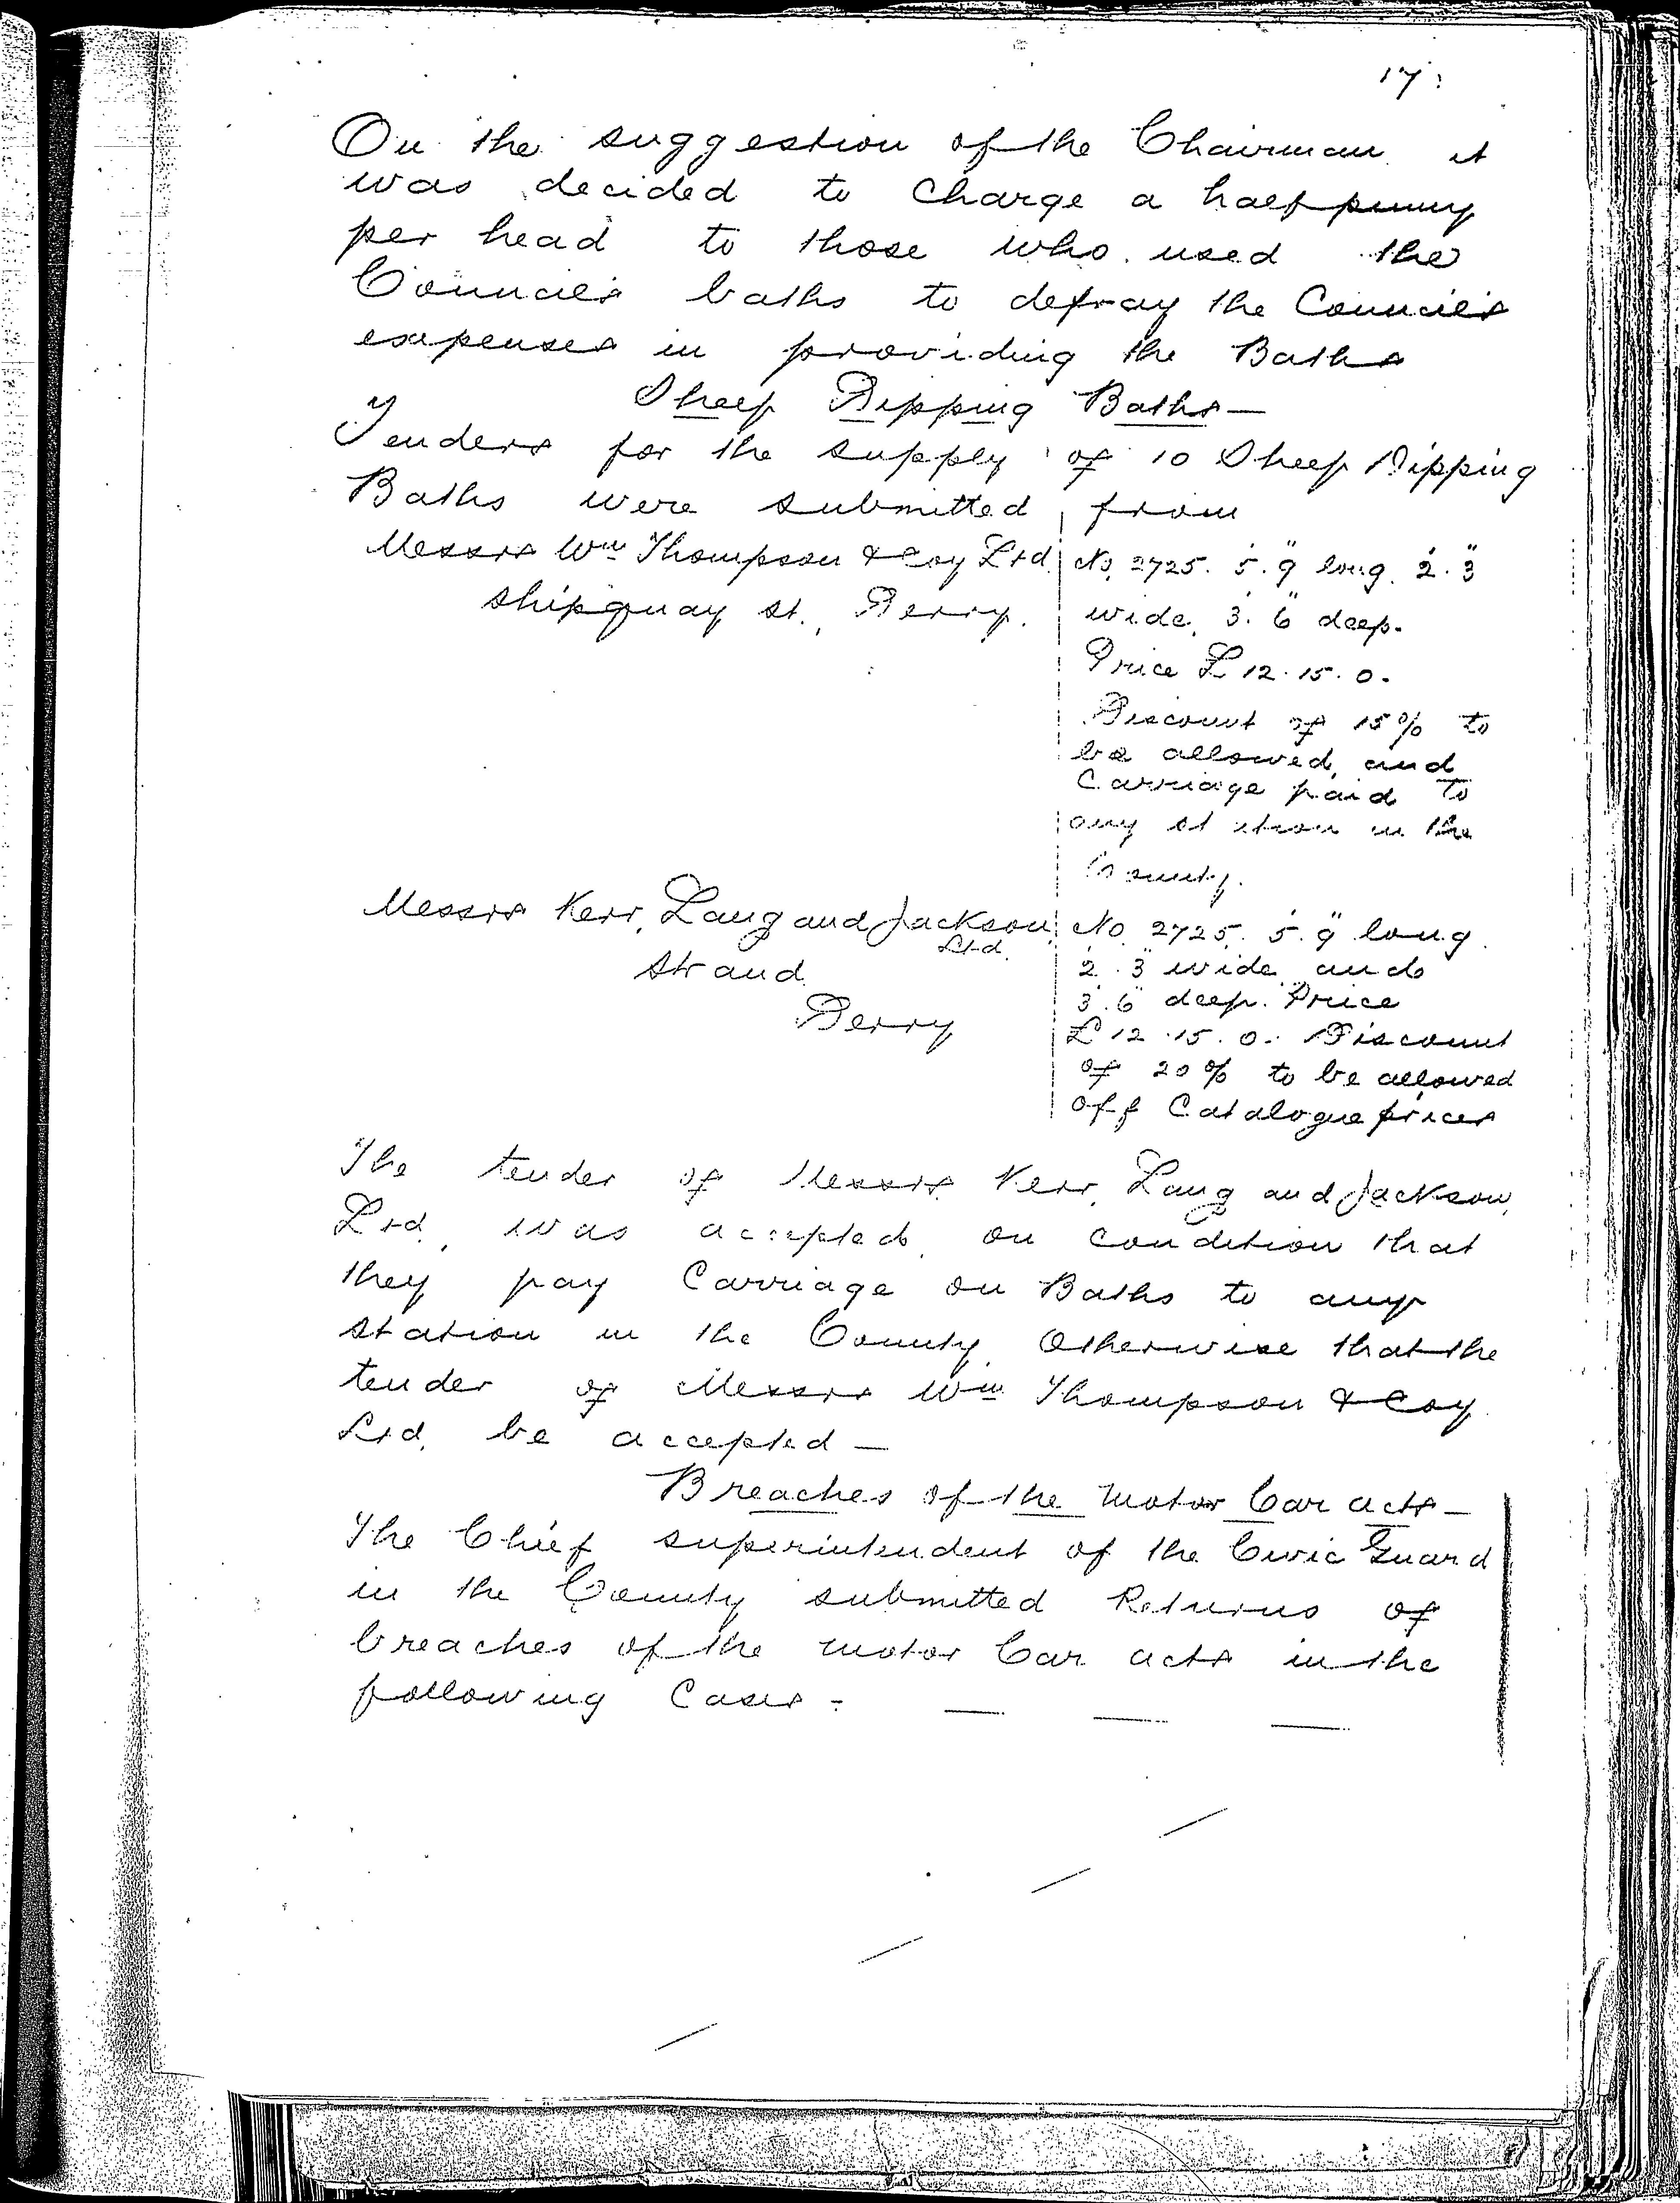 17.
On the suggestion of the Chairman it
was decided to charge a halfpenny
per head to those who used the
Council's baths to defray the Council's
expenses in providing the Baths
Sheep Dipping Baths—
Tenders for the supply of 10 Sheep Dipping
Baths were submitted from
Messrs Wm Thompson & Coy Ltd
Shipquay St., Derry.
No. 2725. 5'.9" long. 2'.3"
wide, 3'.6" deep.
Price £12.15.0.
Discount of 15% to
be allowed, and
Carriage paid to
any station in the
County.
Messrs Kerr, Lang and Jackson
Ltd.
Strand
Derry
No. 2725. 5'.9" long.
2'.3" wide and
3'.6" deep. Price
£12.15.0. Discount
of 20% to be allowed
off Catalogue prices
The tender of Messrs Kerr, Lang and Jackson,
Ltd., was accepted, on condition that
they pay Carriage on Baths to any
station in the County, Otherwise that the
tender of Messrs Wm Thompson & Coy
Ltd, be accepted —
Breaches of the Motor Car Acts—
The Chief Superintendent of the Civic Guard
in the County submitted Returns of
breaches of the Motor Car Acts in the
following Cases:- — — —